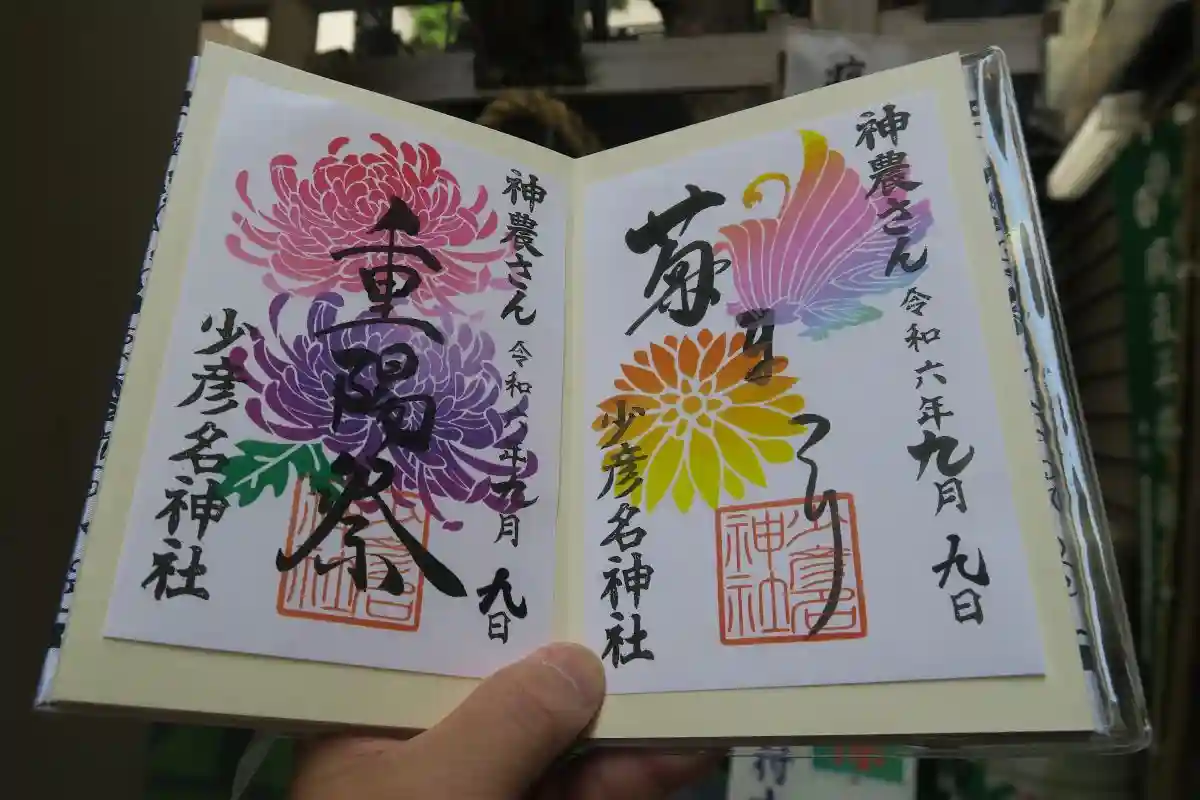 神農さん 令和六年九月九日
菊まつり
少彦名
神社
少彦名神社
神農さん 令和六年九月九日
重陽祭
少彦名神社